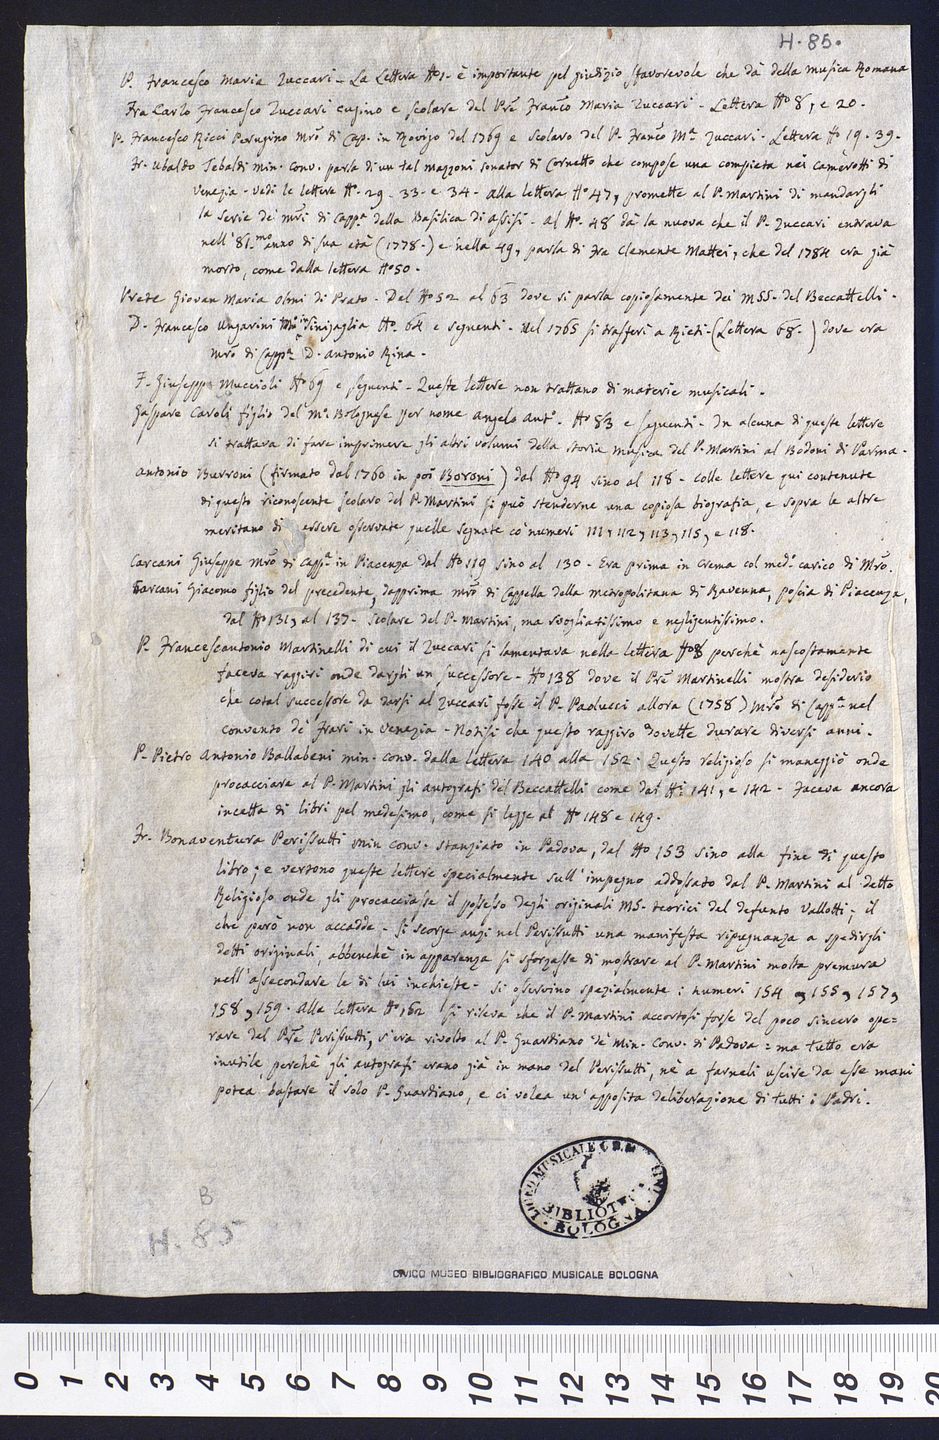 H. 85.
P. Francesco Maria Zuccari - La Lettera Nº1 - è importante pel giudizio sfavorevole che dà della musica Romana
Fra Carlo Francesco Zuccari cugino e scolare del Prē Franc̄o Maria Zuccari - Lettera Nº 8, e 20.
P. Francesco Ricci Perugino Mr̄o di Cap. in Rovigo del 1769 e Scolaro del P. Franc̄o Mª Zuccari. Lettera Nº 19. 39.
Fr. Ubaldo Tebaldi Min. Conv. parla di un tal Mazzoni Sonator di Cornetto che compose una compieta nei camerotti di
Venezia - Vedi le lettere Nº 29. 33. e 34 - Alla lettera Nº 47, promette al P. Martini di mandargli
la serie dei Mr̄i di Cappª della Basilica di Assisi - al Nº 48 dà la nuova che il P. Zuccari entrava
nell'81.mo anno di sua età (1778.) e nella 49, parla di Fra Clemente Mattei, che del 1784 era già
morto, come dalla lettera Nº 50.
Prete Giovan Maria Olmi di Prato - Del Nº 52 al 63 dove si parla copiosamente dei MSS. del Beccattelli.
D. Francesco Ungarini Mr̄o in Sinigaglia Nº 64 e seguenti - Nel 1765 si trasferì a Rieti - (Lettera 68.) dove era
Mr̄o di Cappª D. Antonio Rina.
F. Giuseppe Muccioli Nº 69 e seguenti - Queste lettere non trattano di materie musicali.
Gaspare Caroli figlio del Mº Bolognese per nome Angelo Antº. Nº 83 e seguenti - In alcuna di queste lettere
si trattava di fare imprimere gli altri volumi della storia musica del P. Martini al Bodoni di Parma.
Antonio Burroni (firmato dal 1760 in poi Boroni) dal Nº 94 sino al 118 - Colle lettere qui contenute
di questo riconoscente scolaro del P. Martini si può stenderne una copiosa biografia, e sopra le altre
meritano di essere osservate quelle segnate co' numeri 111, 112, 113, 115, e 118.
Carcani Giuseppe Mr̄o di Cappª in Piacenza dal Nº 119 sino al 130 - Era prima in Crema col medº carico di Mr̄o.
Carcani Giacomo figlio del precedente, dapprima Mr̄o di Cappella della Metropolitana di Ravenna, poscia di Piacenza,
dal Nº 131, al 137 - Scolare del P. Martini, ma svogliatissimo e negligentissimo.
P. Francescantonio Martinelli di cui il Zuccari si lamentava nella lettera Nº 8 perchè nascostamente
faceva raggiri onde dargli un successore - Nº 138 dove il Prē Martinelli mostra desiderio
che cotal successore da darsi al Zuccari fosse il P. Paolucci allora (1758) Mr̄o di Cappª nel
convento de' Frari in Venezia - Notisi che questo raggiro dovette durare diversi anni.
P. Pietro Antonio Ballabeni min. conv. dalla lettera 140 alla 152. Questo religioso si maneggiò onde
procacciare al P. Martini gli autografi del Beccattelli come dai Ni 141, e 142 - Faceva ancora
incetta di libri pel medesimo, come si legge al Nº 148 e 149.
Fr. Bonaventura Perissutti min conv. stanziato in Padova, dal Nº 153 sino alla fine di questo
libro; e vertono queste lettere specialmente sull'impegno addossato dal P. Martini al detto
Religioso onde gli procacciasse il possesso degli originali MS. teorici del defunto Vallotti; il
che però non accadde - Si scorge anzi nel Perissutti una manifesta ripugnanza a spedirgli
detti originali, abbenchè in apparenza si sforzasse di mostrare al P. Martini molta premura
nell'assecondare le di lui inchieste - Si osservino spezialmente i numeri 154, 155, 157,
158, 159 - Alla lettera Nº 162 si rileva che il P. Martini accortosi forse del poco sincero ope=
rare del Prē Perissutti, s'era rivolto al P. Guardiano de' Min. Conv. di Padova = ma tutto era
inutile, perchè gli autografi erano già in mano del Perissutti, nè a farneli uscire da esse mani
potea bastare il solo P. Guardiano, e ci volea un'apposita deliberazione di tutti i Padri.
LICEO MUSICALE
BIBLIOT
BOLOGNA
B
H. 85
CIVICO MUSEO BIBLIOGRAFICO MUSICALE BOLOGNA
0 1 2 3 4 5 6 7 8 9 10 11 12 13 14 15 16 17 18 19 20